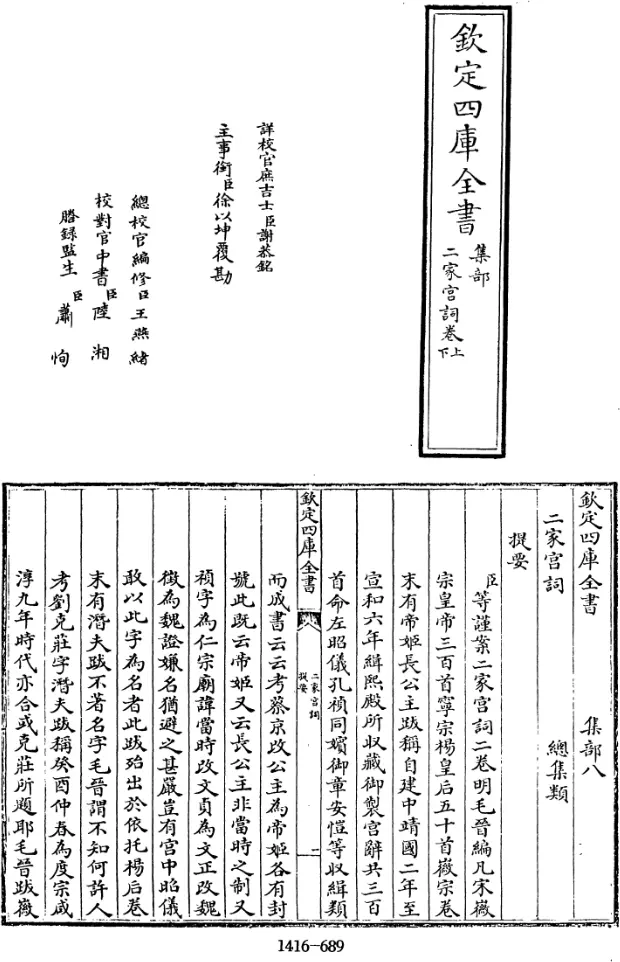 欽定四庫全書
集部
二家宮詞卷上下
詳校官庶吉士臣謝恭銘
主事銜臣徐以坤覆勘
總校官編修臣王燕緒
校對官中書臣陸湘
謄錄監生臣蕭恂
欽定四庫全書 集部八
二家宮詞 總集類
提要
臣等謹案二家宮詞二卷明毛晉編凡宋徽
宗皇帝三百首寧宗楊皇后五十首徽宗卷
末有帝姬長公主跋稱自建中靖國二年至
宣和六年緝熙殿所収藏御製宮辭共三百
首命左昭儀孔禎同嬪御章安愷等収緝類
欽定四庫全書
二家宮詞
提要
二
而成書云云考蔡京改公主為帝姬各有封
號此既云帝姬又云長公主非當時之制又
禎字為仁宗廟諱當時改文貞為文正改魏
徵為魏證嫌名猶避之甚嚴豈有宮中昭儀
敢以此字為名者此跋殆出於依托楊后卷
末有潛夫跋不著名字毛晉謂不知何許人
考劉克莊字潛夫跋稱癸酉仲春為度宗咸
淳九年時代亦合或克莊所題耶毛晉跋徽
1416-689